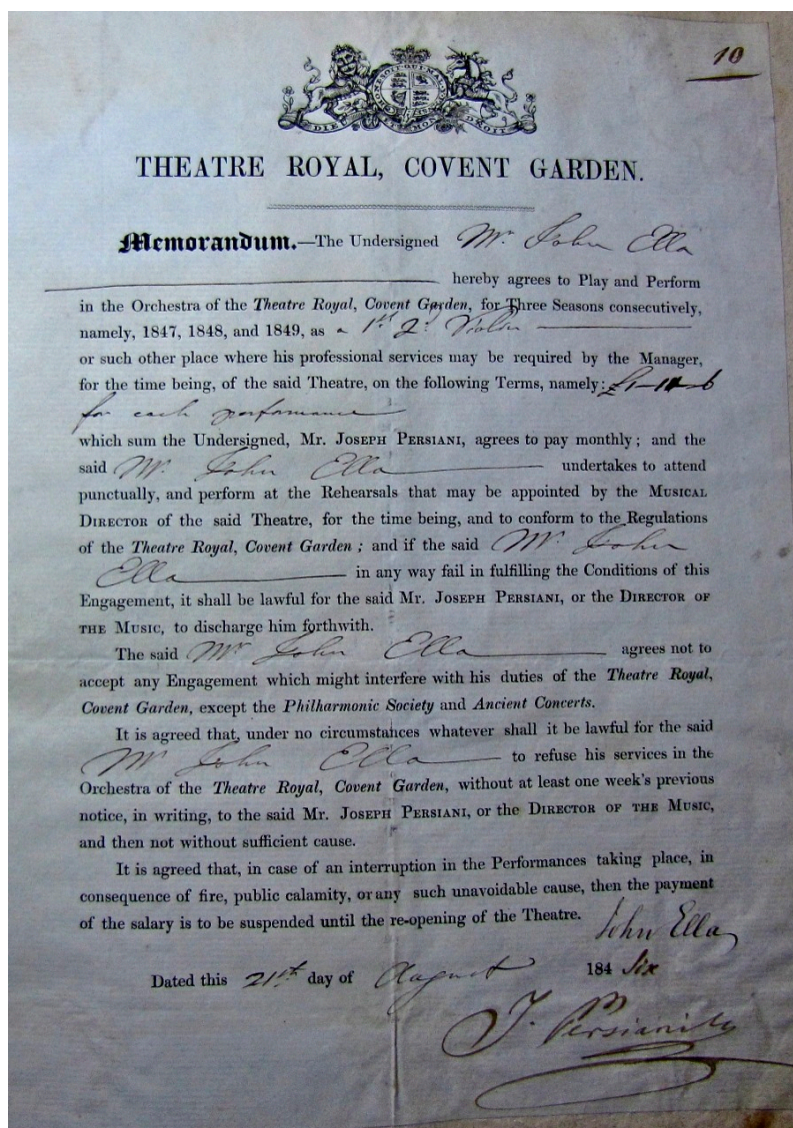 10
DIEU ET MON DROIT
THEATRE ROYAL, COVENT GARDEN.
Memorandum.—The Undersigned Mr. John Ella
hereby agrees to Play and Perform
in the Orchestra of the Theatre Royal, Covent Garden, for Three Seasons consecutively,
namely, 1847, 1848, and 1849, as a 1st 2d Violin
or such other place where his professional services may be required by the Manager,
for the time being, of the said Theatre, on the following Terms, namely: £1-11-6
for each performance
which sum the Undersigned, Mr. JOSEPH PERSIANI, agrees to pay monthly; and the
said Mr. John Ella undertakes to attend
punctually, and perform at the Rehearsals that may be appointed by the MUSICAL
DIRECTOR of the said Theatre, for the time being, and to conform to the Regulations
of the Theatre Royal, Covent Garden; and if the said Mr. John
Ella in any way fail in fulfilling the Conditions of this
Engagement, it shall be lawful for the said Mr. JOSEPH PERSIANI, or the DIRECTOR OF
THE MUSIC, to discharge him forthwith.
The said Mr John Ella agrees not to
accept any Engagement which might interfere with his duties of the Theatre Royal,
Covent Garden, except the Philharmonic Society and Ancient Concerts.
It is agreed that, under no circumstances whatever shall it be lawful for the said
Mr John Ella to refuse his services in the
Orchestra of the Theatre Royal, Covent Garden, without at least one week's previous
notice, in writing, to the said Mr. JOSEPH PERSIANI, or the DIRECTOR OF THE MUSIC,
and then not without sufficient cause.
It is agreed that, in case of an interruption in the Performances taking place, in
consequence of fire, public calamity, or any such unavoidable cause, then the payment
of the salary is to be suspended until the re-opening of the Theatre.
John Ella
Dated this 21st day of August 184 Six
J. Persiani